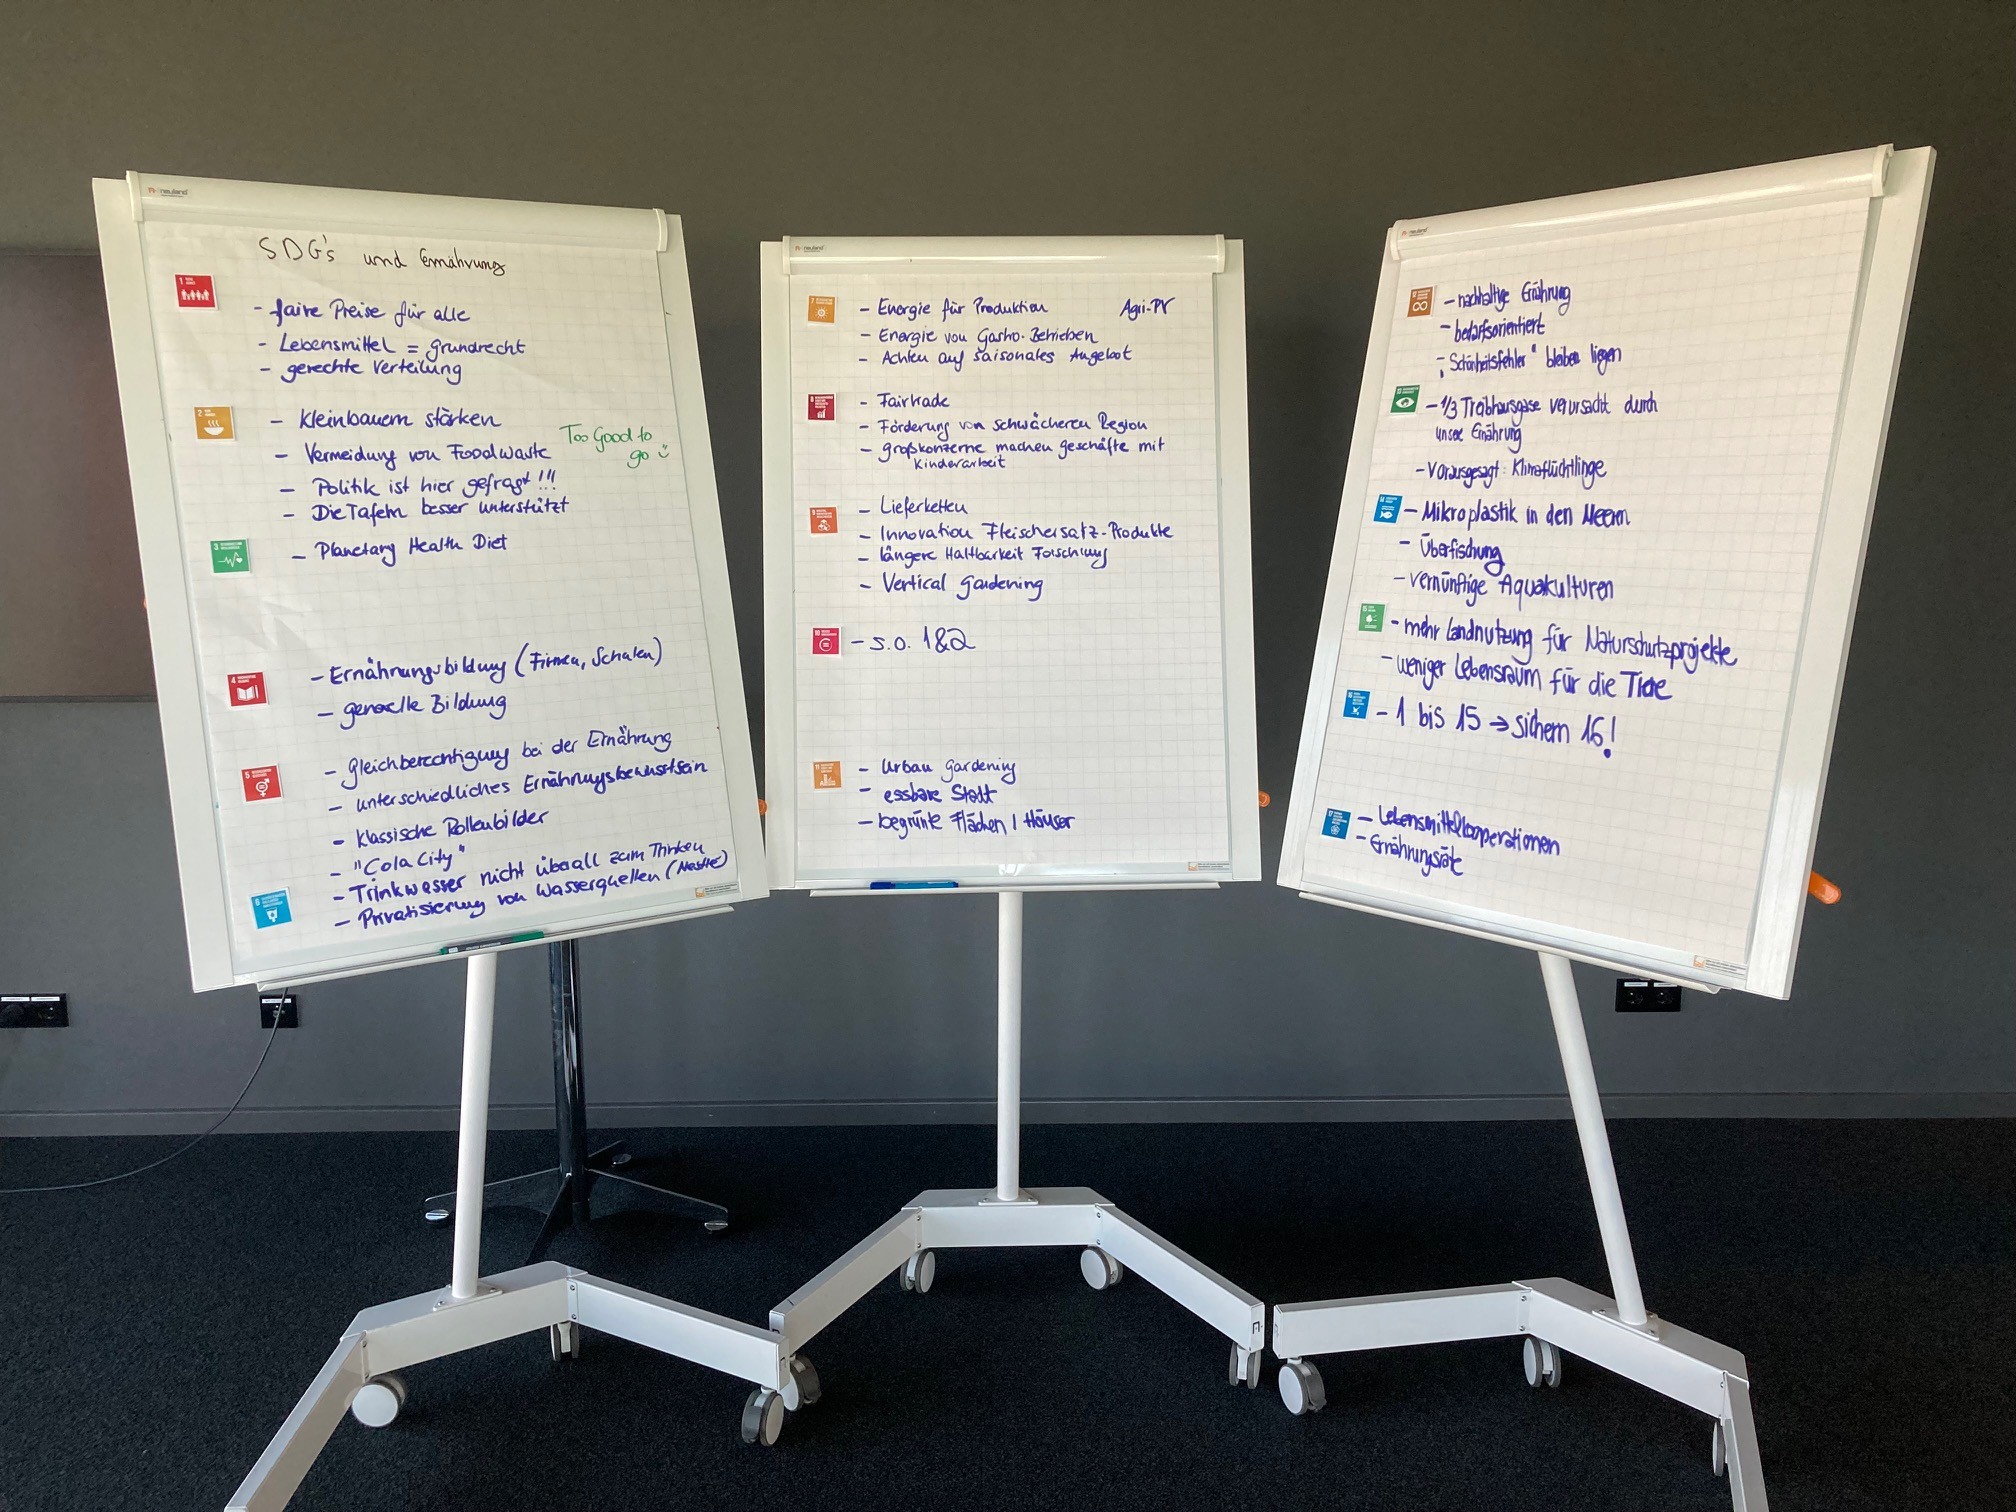 neuland
SDG's und Ernährung
1
- faire Preise für alle
- Lebensmittel = Grundrecht
- gerechte Verteilung
2
- Kleinbauern stärken
- Vermeidung von Foodwaste
Too Good to
go
- Politik ist hier gefragt !!!
- Die Tafeln besser unterstützt
3
- Planetary Health Diet
4
- Ernährungsbildung (Firmen, Schulen)
- generelle Bildung
5
- Gleichberechtigung bei der Ernährung
- unterschiedliches Ernährungsbewusstsein
- klassische Rollenbilder
- "Cola City"
6
- Trinkwasser nicht überall zum Trinken
- Privatisierung von Wasserquellen (Nestlé)
neuland
7
- Energie für Produktion Agri-PV
- Energie von Gastro-Betrieben
- Achten auf saisonales Angebot
8
- Fairtrade
- Förderung von schwächeren Region
- Großkonzerne machen Geschäfte mit
Kinderarbeit
9
- Lieferketten
- Innovation Fleischersatz-Produkte
- längere Haltbarkeit Forschung
- Vertical Gardening
10
- s.o. 1&2
11
- Urban Gardening
- essbare Stadt
- begrünte Flächen / Häuser
neuland
12
- nachhaltige Ernährung
- bedarfsorientiert
- „Schönheitsfehler" bleiben liegen
13
- 1/3 Treibhausgase verursacht durch
unsere Ernährung
- Vorausgesagt: Klimaflüchtlinge
14
- Mikroplastik in den Meeren
- Überfischung
- vernünftige Aquakulturen
15
- mehr Landnutzung für Naturschutzprojekte
- weniger Lebensraum für die Tiere
16
- 1 bis 15 → sichern 16!
17
- Lebensmittelkooperationen
- Ernährungsräte